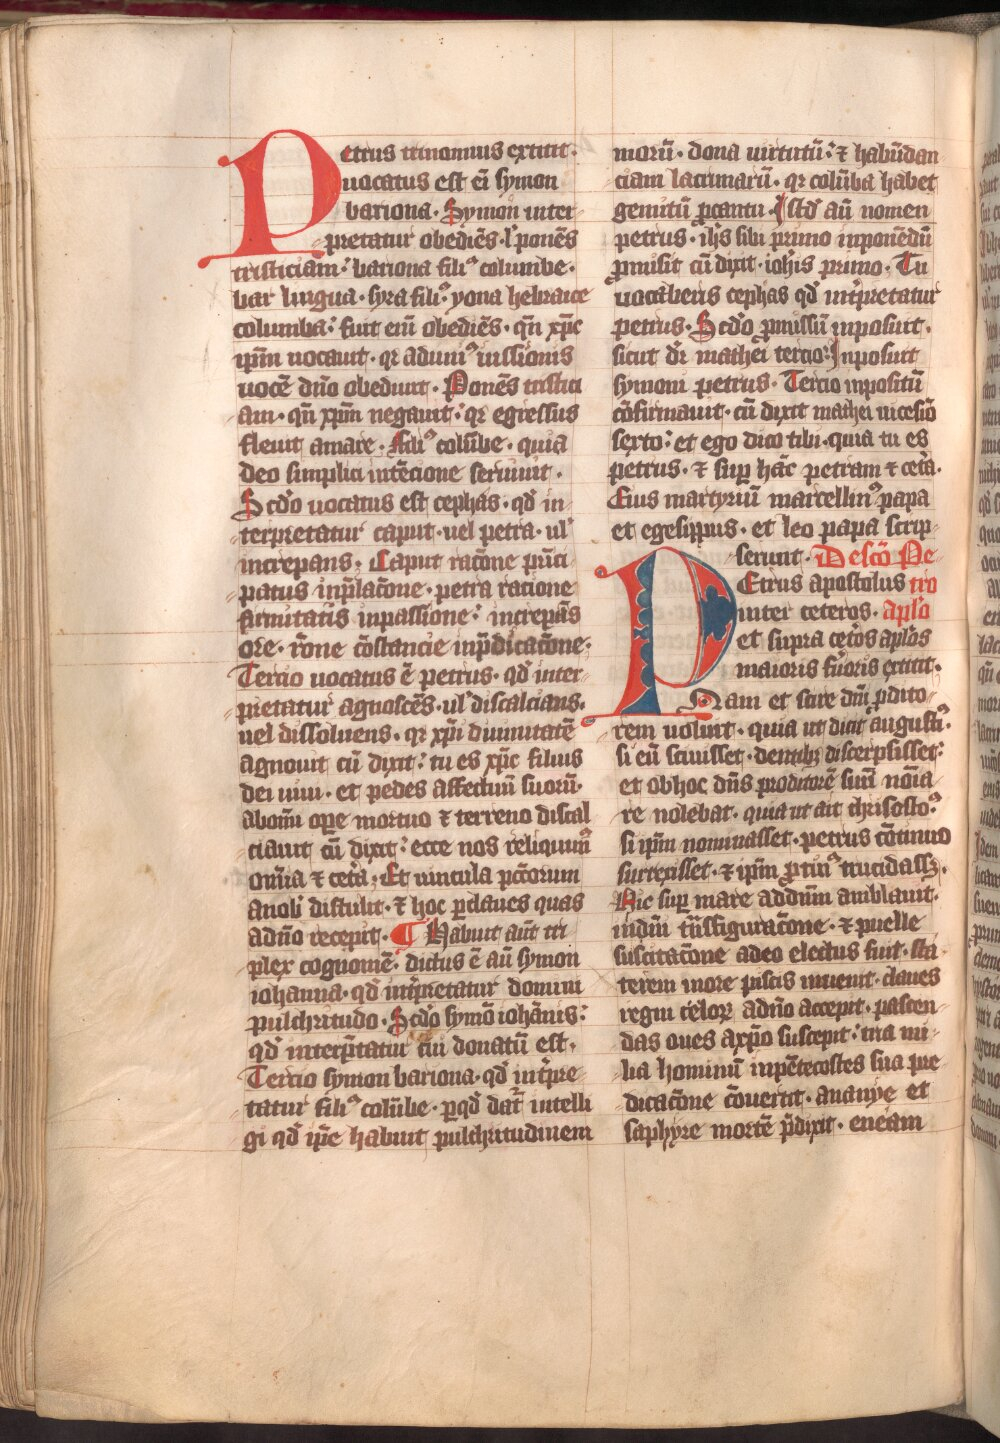 Petrus trinomius extitit·
uocatus est em̄ symon
bariona· Symon inter
pretatur obediēs· l' ponēs
tristiciam· bariona filiꝰ columbe·
bar lingua· syra filiꝰ· yona hebraice
columba: fuit eni obediēs· qn̄ xp̄c
ip̄m uocauit· qr aduniꝰ iussionis
uocē dn̄o obediuit· Ponēs tristici
am· qn̄ xp̄m negauit: qr egressus
fleuit amare· filiꝰ colūbe· quia
deo simplici intēcione seruiuit·
Scd̓o uocatus est cephas· qd̓ in
terpretatur caput· uel petra· ul'
increpans· Caput rac̄one pn̄ci
patus inp̄lac̄one· petra racione
firmitatis inpassione: increpās
ore· rōne cōstancie inp̄dicac̄one·
Tercio uocatus ē petrus· qd̓ inter
pretatur agnoscēs· ul' discalcians·
uel dissoluens· qr xp̄i diuinitatē
agnouit cū dixit: tu es xp̄c filius
dei uiui· et pedes affectuū suorū·
abom̄i ope mortuo ⁊ terreno discal
ciauit cū dixit: ecce nos reliquimꝰ
om̄ia ⁊ cet̄a· Et uincula pc̄torum
anob̓ distulit· ⁊ hoc ꝑclaues quas
adn̄o recepit· ¶ Habuit aūt tri
plex cognomē· dictus ē aū symon
iohanna· qd̓ int̓pretatur domini
pulchritudo· Scd̓o symō iohānis:
qd̓ interp̄tatur cui donatū est·
Tercio symon bariona· qd̓ int̓pre
tatur filiꝰ colūbe· ꝑqd̓ dat̄ intelli
gi qd̓ ip̄e habuit pulchritudinem
morū· dona uirtutū: ⁊ habūdan
ciam lacrimarū· qr colūba habet
gemitū ꝓcantu· Istd̓ aū nomen
petrus· ih̄s sibi primo inponēdū
ꝓmisit cū dixit· ioh̄is primo· Tu
uocaberis cephas qd̓ int̓pretatur
petrus· Scd̓o ꝓmissū inposuit·
sicut dr̄ mathei tercio: Inposuit
symoni petrus· Tercio inpositū
cōfirmauit· cū dixit mathei uicesiō
sexto: et ego dico tibi· quia tu es
petrus· ⁊ suꝑ hāc petram ⁊ cet̄a·
Eius martyriū marcellinꝰ papa
et egesippus· et leo papa scrip
serunt· De sc̄o Pe
Etrus apostolus tro
inter ceteros· apl̓o
et supra cet̓os apl̓os
maioris f̓uoris extitit·
Nam et scire dn̄i ꝓdito
rem uoluit· quia ut dicit augustꝰ·
si eū sciuisset· dentibꝫ discerpsisset:
et obhoc dn̄s proditorē suū noīa
re nolebat· quia ut ait chrisostoꝰ
si ip̄m nominasset· petrus cōtinuo
surrexisset· ⁊ ip̄m ꝓtinꝰ trucidassꝫ·
Hic suꝑ mare addn̄m amblauit·
indn̄i tn̄sfigurac̄one· ⁊ puelle
suscitac̄one adeo electus fuit· sta
terem inore piscis inuenit· claues
regni celoꝝ adn̄o accepit· pascen
das oues axp̄o suscepit: tria mi
lia hominū inpētecostes sua pre
dicac̄one cōuertit· ananye et
saphyre mortē p̄dixit· eneam